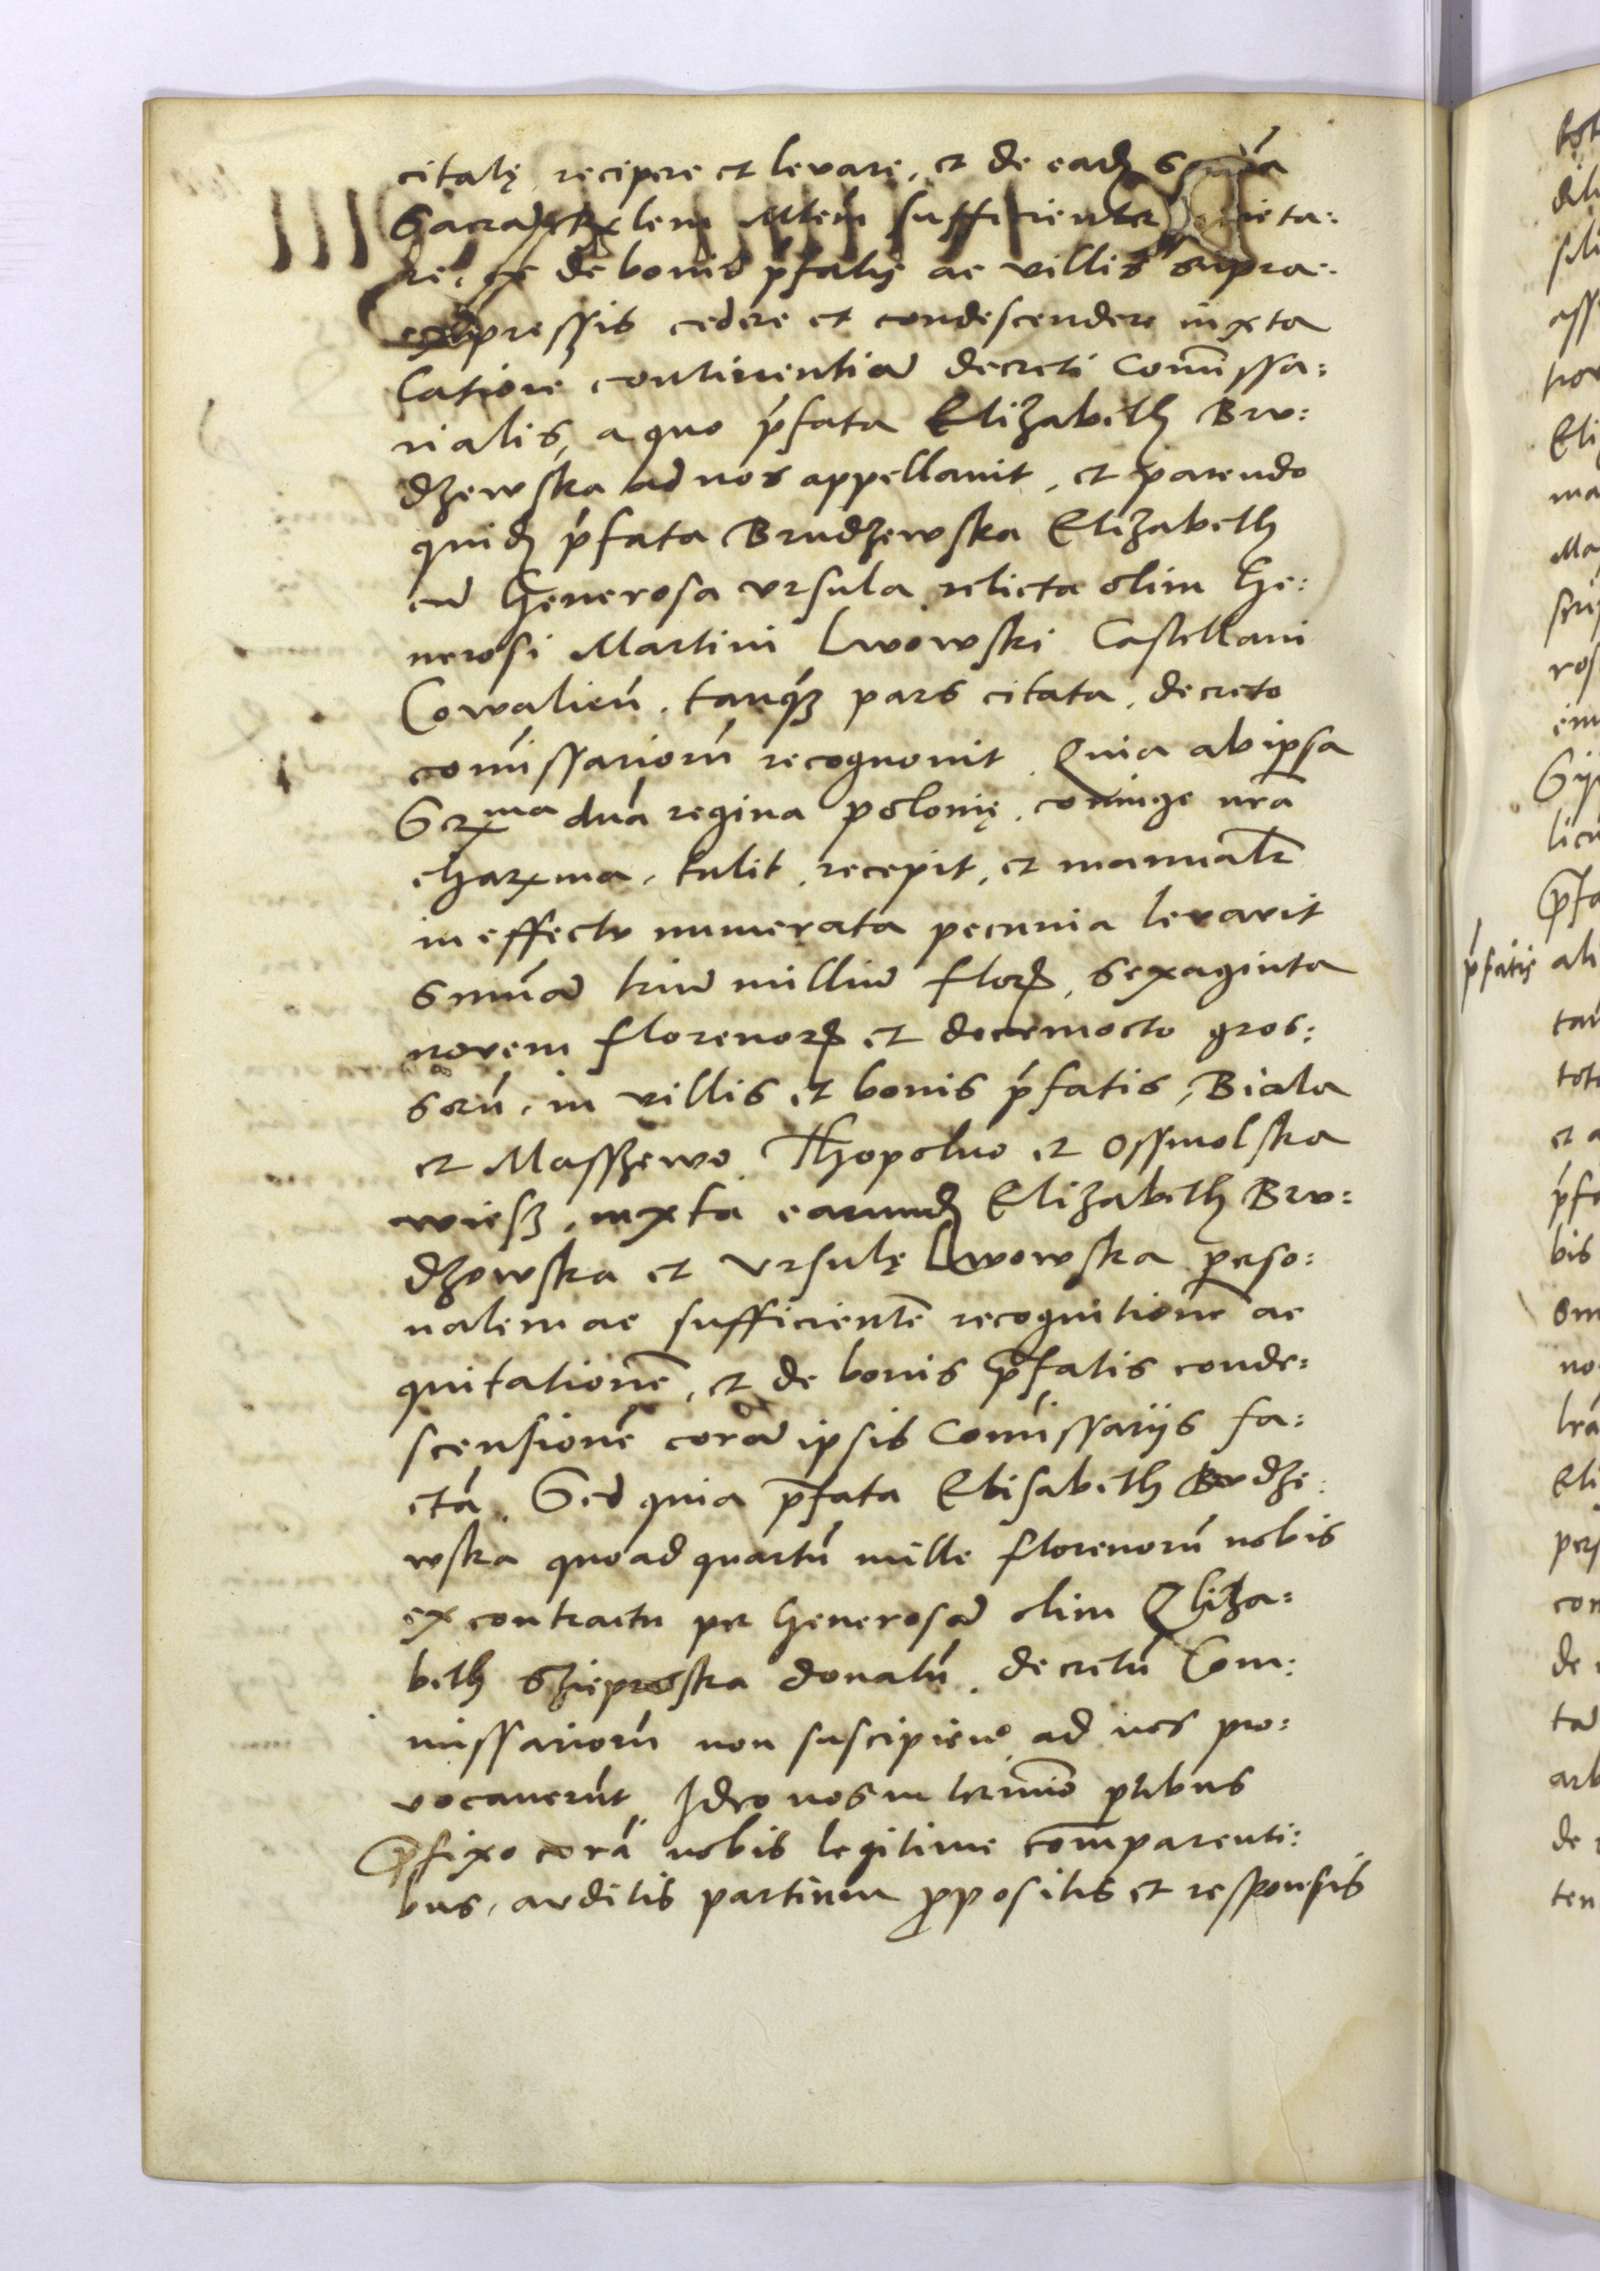 citatę, recipere et levare, et de eadē sūma
Sacram Rxlem Mtem sufficienter quieta:
re, et de bonis p̄fatis ac villis supra
expressis cedere et condescendere iuxta
latiorē continentiam decreti Comissa:
rialis, a quo p̄fata Elizabeth Bru:
dzewska ad nos appellavit, et parendo
quidē p̄fata Brudzewska Elizabeth
cum Generosa Vrsula relicta olim Ge:
nerosi Martini Lwowski Castellani
Cowalieñ, tanq̄ pars citata, decreto
comissariorū recognovit, Quia ab ipsa
Serma dnā regina polonię, coniuge nrā
charxma, tulit, recepit, et manualr̄
in effectu numerata pecunia levavit
sūmam trium millium florē, sexaginta
novem florenorē et decemocto gros:
sorū, in villis et bonis p̄fatis, Biala
et Masszewo Thopolno et Ossmolska
wiesz, iuxta earundē Elizabeth Bru:
dzewska et Vrsulę Lwowska perso:
nalem ac sufficientē recognitionē ac
quitationē, et de bonis p̄fatis conde:
scensionē coram ipsis Comissarijs fa:
ctā, Sed quia p̄fata Elisabeth Brudze:
wska quoad quartū mille florenorū nobis
ex contractu per Generosam olim Eliza:
beth donatū, decretū Com:
missariorū non suscipiens ad nos pro:
vocaverūt, Ideo nos in termīo ptibus
p̄fixo corā nobis legitime comparenti:
bus, auditis partium propositis et responsis
p̄fatis